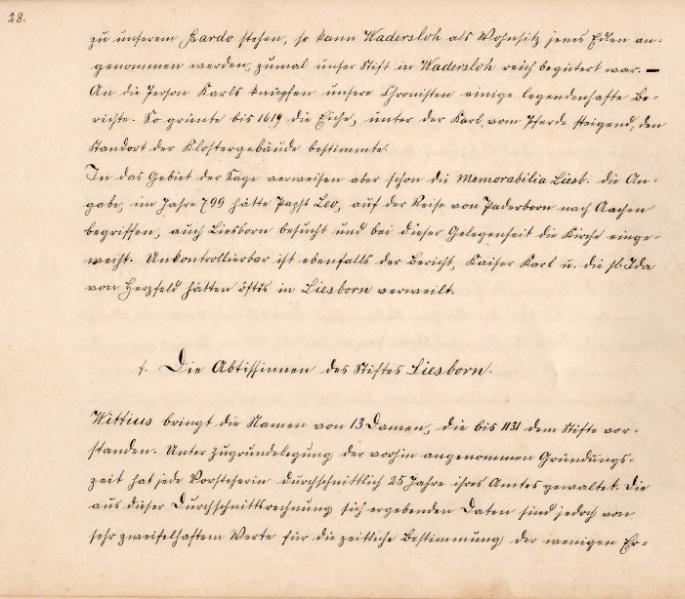 28.
zu unserem Bardo stehen, so kann Wadersloh als Wohnsitz jenes Edlen an-
genommen werden, zumal unser Stift in Wadersloh reich begütert war. —
An die Person Karls knüpfen unsere Chronisten einige legendenhafte Be-
richte. So grünte bis 1619 die Eiche, unter der Karl, vom Pferde steigend, den
Standort der Klostergebäude bestimmte.
In das Gebiet der Sage verweisen aber schon die Memorabilia Liesb. die An-
gabe, im Jahre 799 hätte Papst Leo, auf der Reise von Paderborn nach Aachen
begriffen, auch Liesborn besucht und bei dieser Gelegenheit die Kirche einge-
weiht. Unkontrollierbar ist ebenfalls der Bericht, Kaiser Karl u. die hl. Ida
von Herzfeld hätten öfters in Liesborn verweilt.
f. Die Äbtissinnen des Stiftes Liesborn.
Wittius bringt die Namen von 13 Damen, die bis 1131 dem Stifte vor-
standen. Unter Zugrundelegung der vorhin angenommen Gründungs-
zeit hat jede Vorsteherin durchschnittlich 25 Jahre ihres Amtes gewaltet. Die
aus dieser Durchschnittsrechnung sich ergebenden Daten sind jedoch von
sehr zweifelhaftem Werte für die zeitliche Bestimmung der wenigen Er-